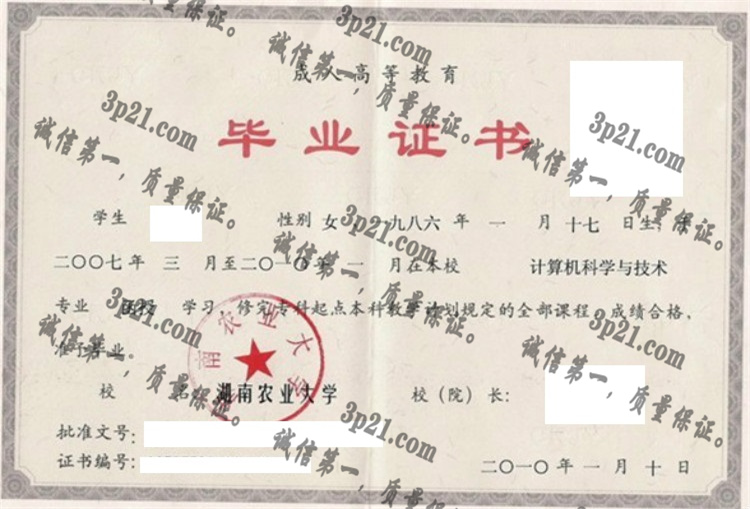 成人高等教育
毕业证书
学生 性别 女 一九八六 年 一 月 十七 日生
二〇〇七年 三 月至二〇一〇年 一 月在本校 计算机科学与技术
专业 函授 学习，修完专科起点本科教学计划规定的全部课程，成绩合格，
准予毕业
校 名 湖南农业大学 校（院）长：
批准文号：
证书编号： 二〇一〇年 一 月 十 日
湖南农业大学
3p21.com
诚信第一，质量保证。
3p21.com
诚信第一，质量保证。
3p21.com
诚信第一，质量保证。
3p21.com
诚信第一，质量保证。
3p21.com
诚信第一，质量保证。
3p21.com
诚信第一，质量保证。
3p21.com
诚信第一，质量保证。
3p21.com
诚信第一，质量保证。